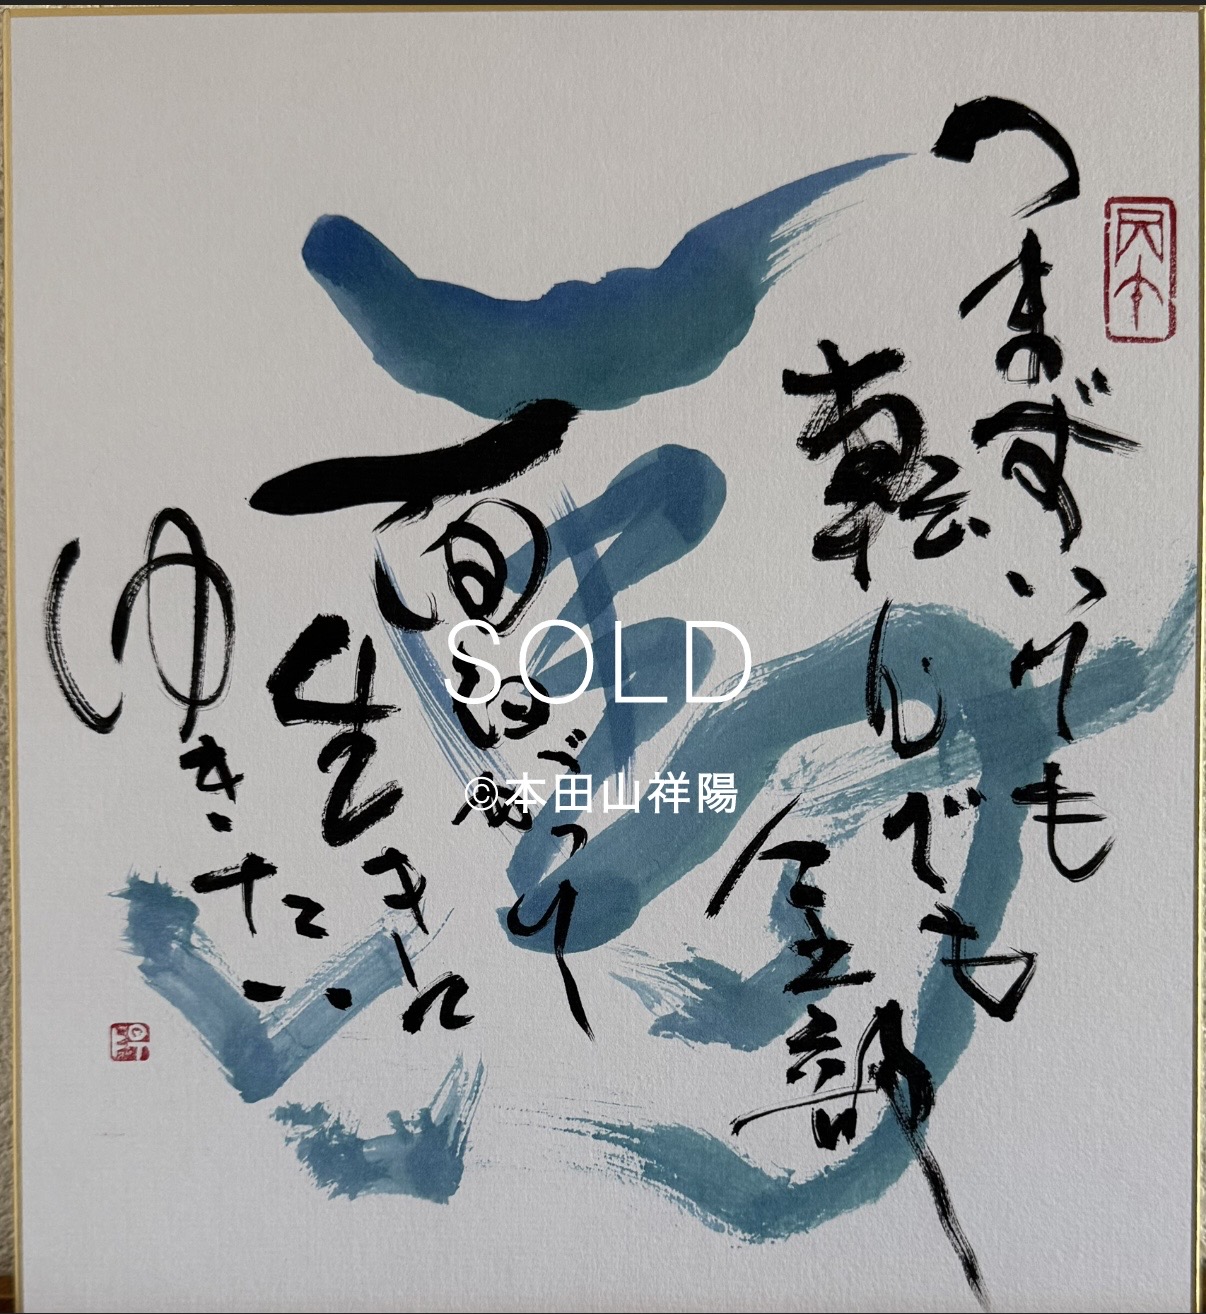 つまずいても
転んでも
全部
面白がって
生きて
ゆきたい
SOLD
©本田山祥陽